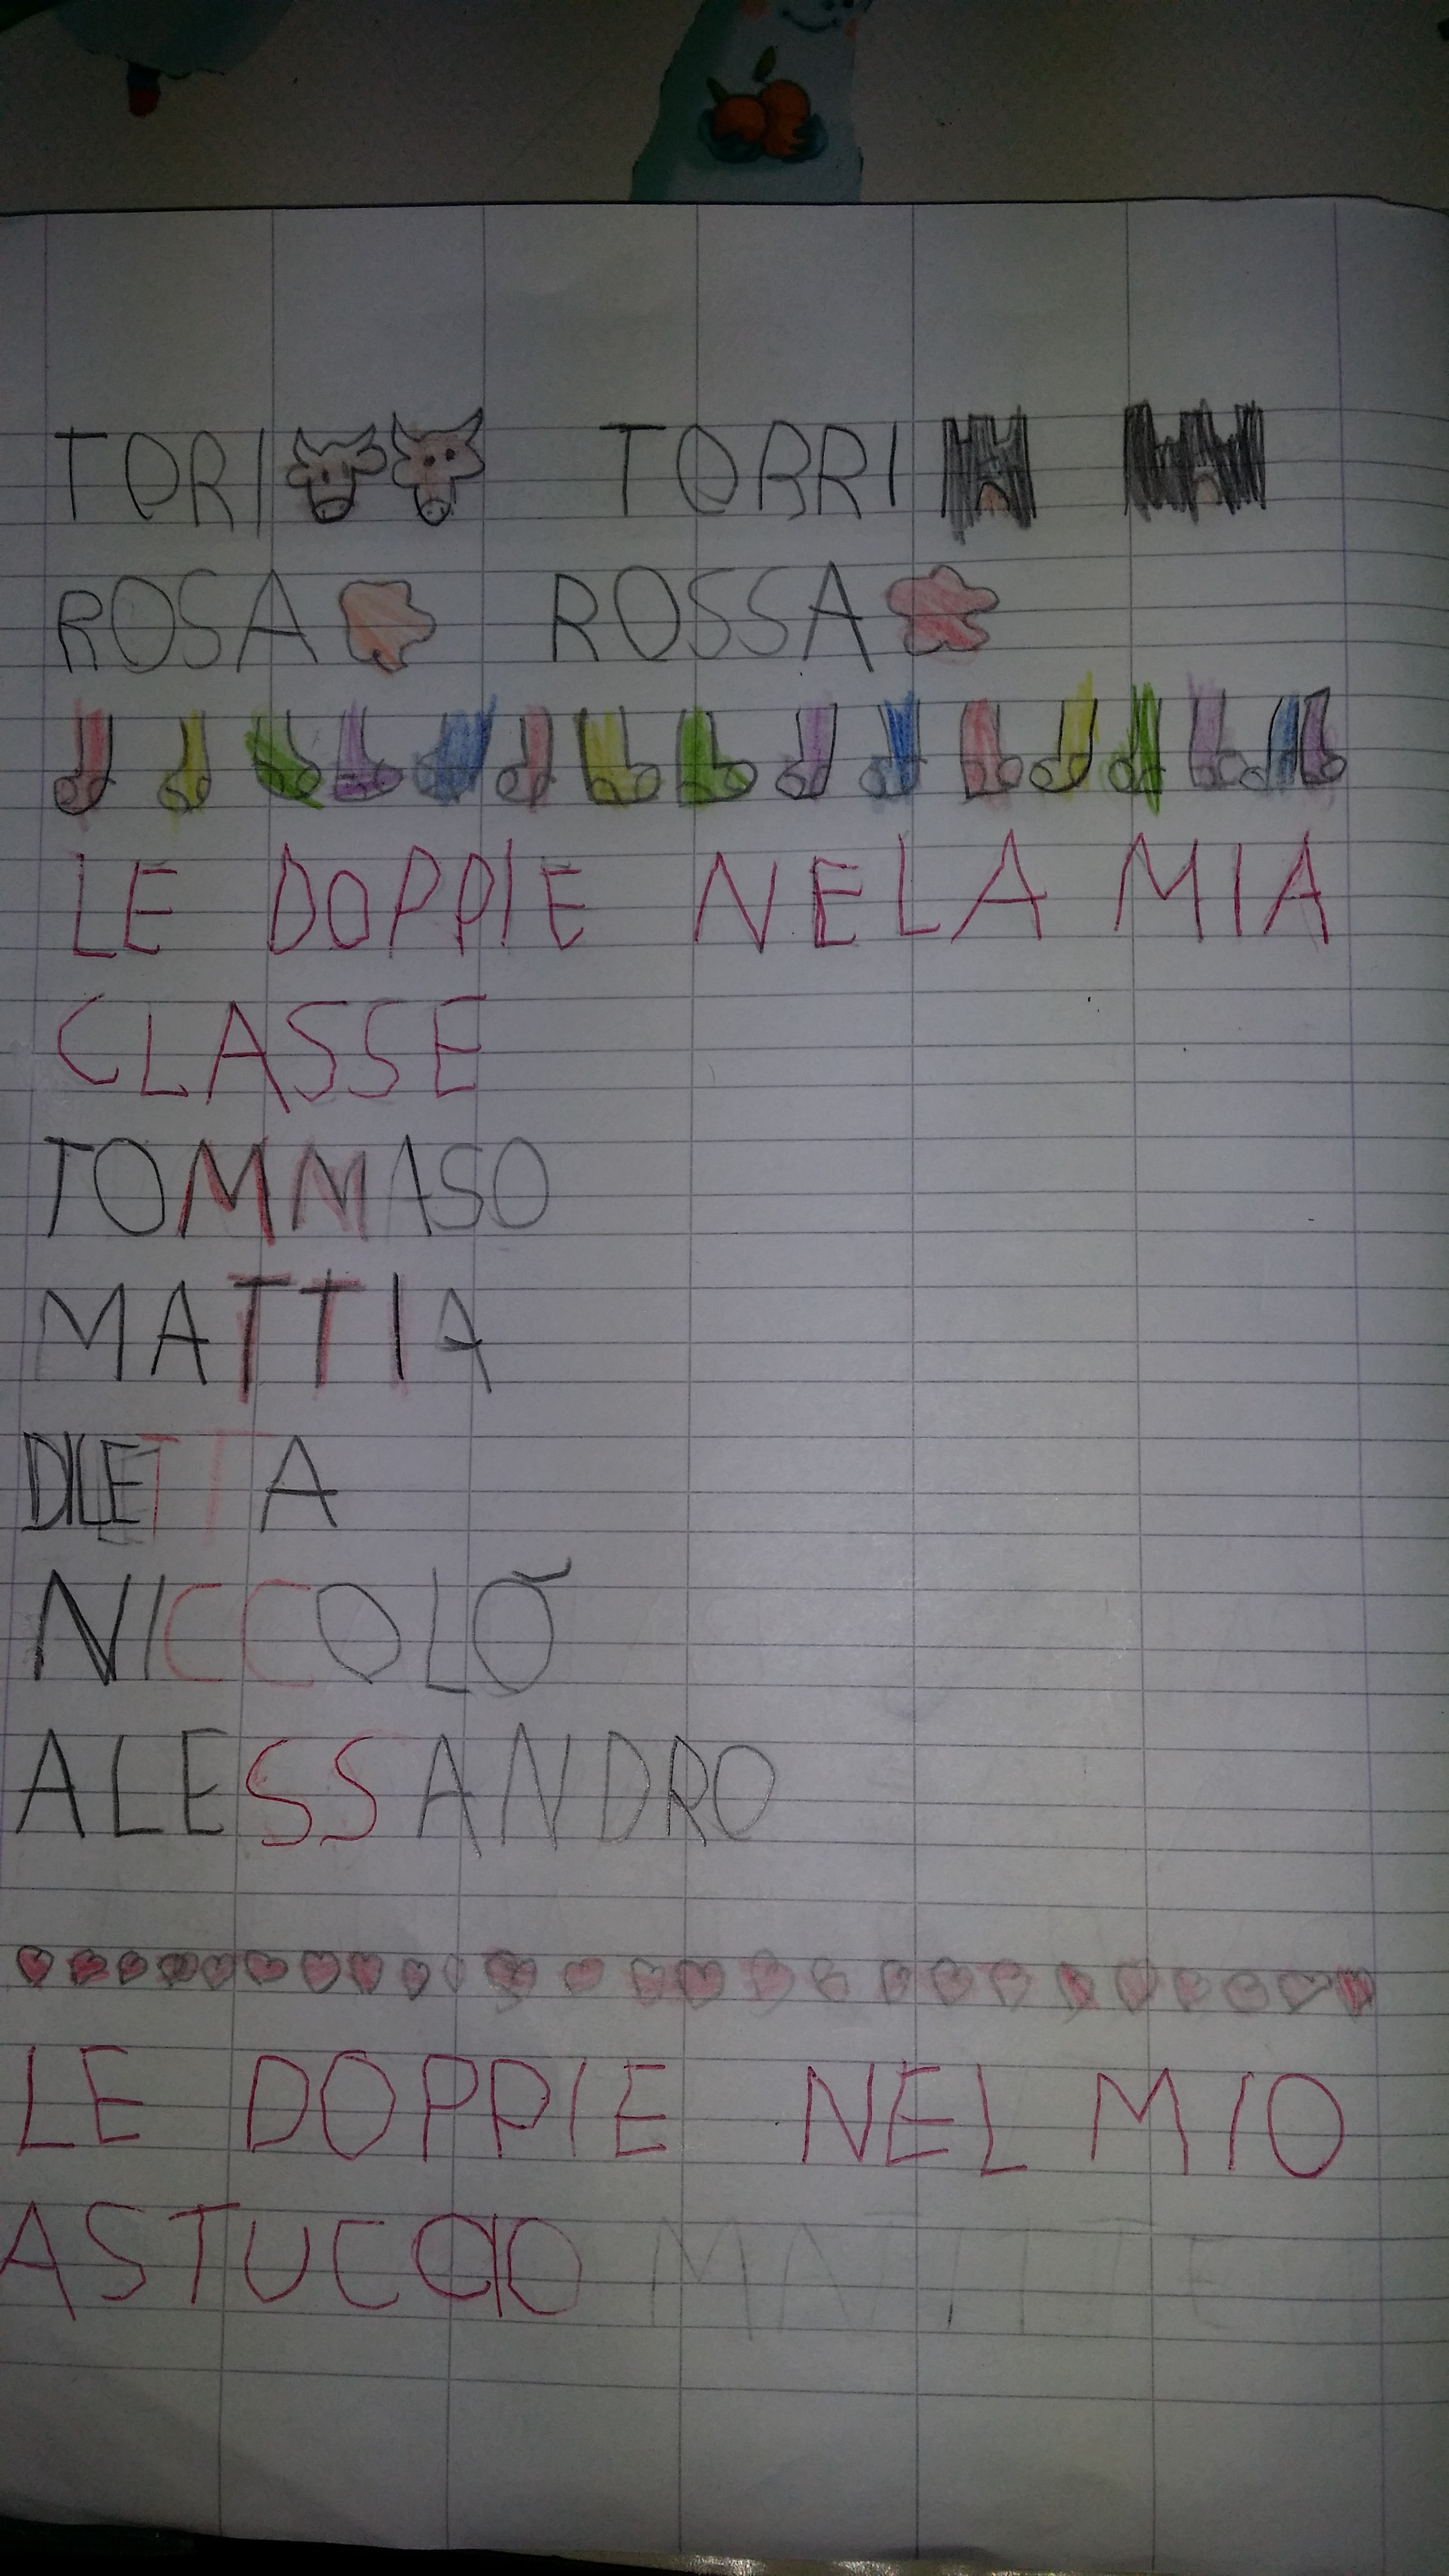 TORI TORRI
ROSA ROSSA
LE DOPPIE NELA MIA
CLASSE
TOMMASO
MATTIA
DILETTA
NICCOLÒ
ALESSANDRO
LE DOPPIE NEL MIO
ASTUCCIO MATITE